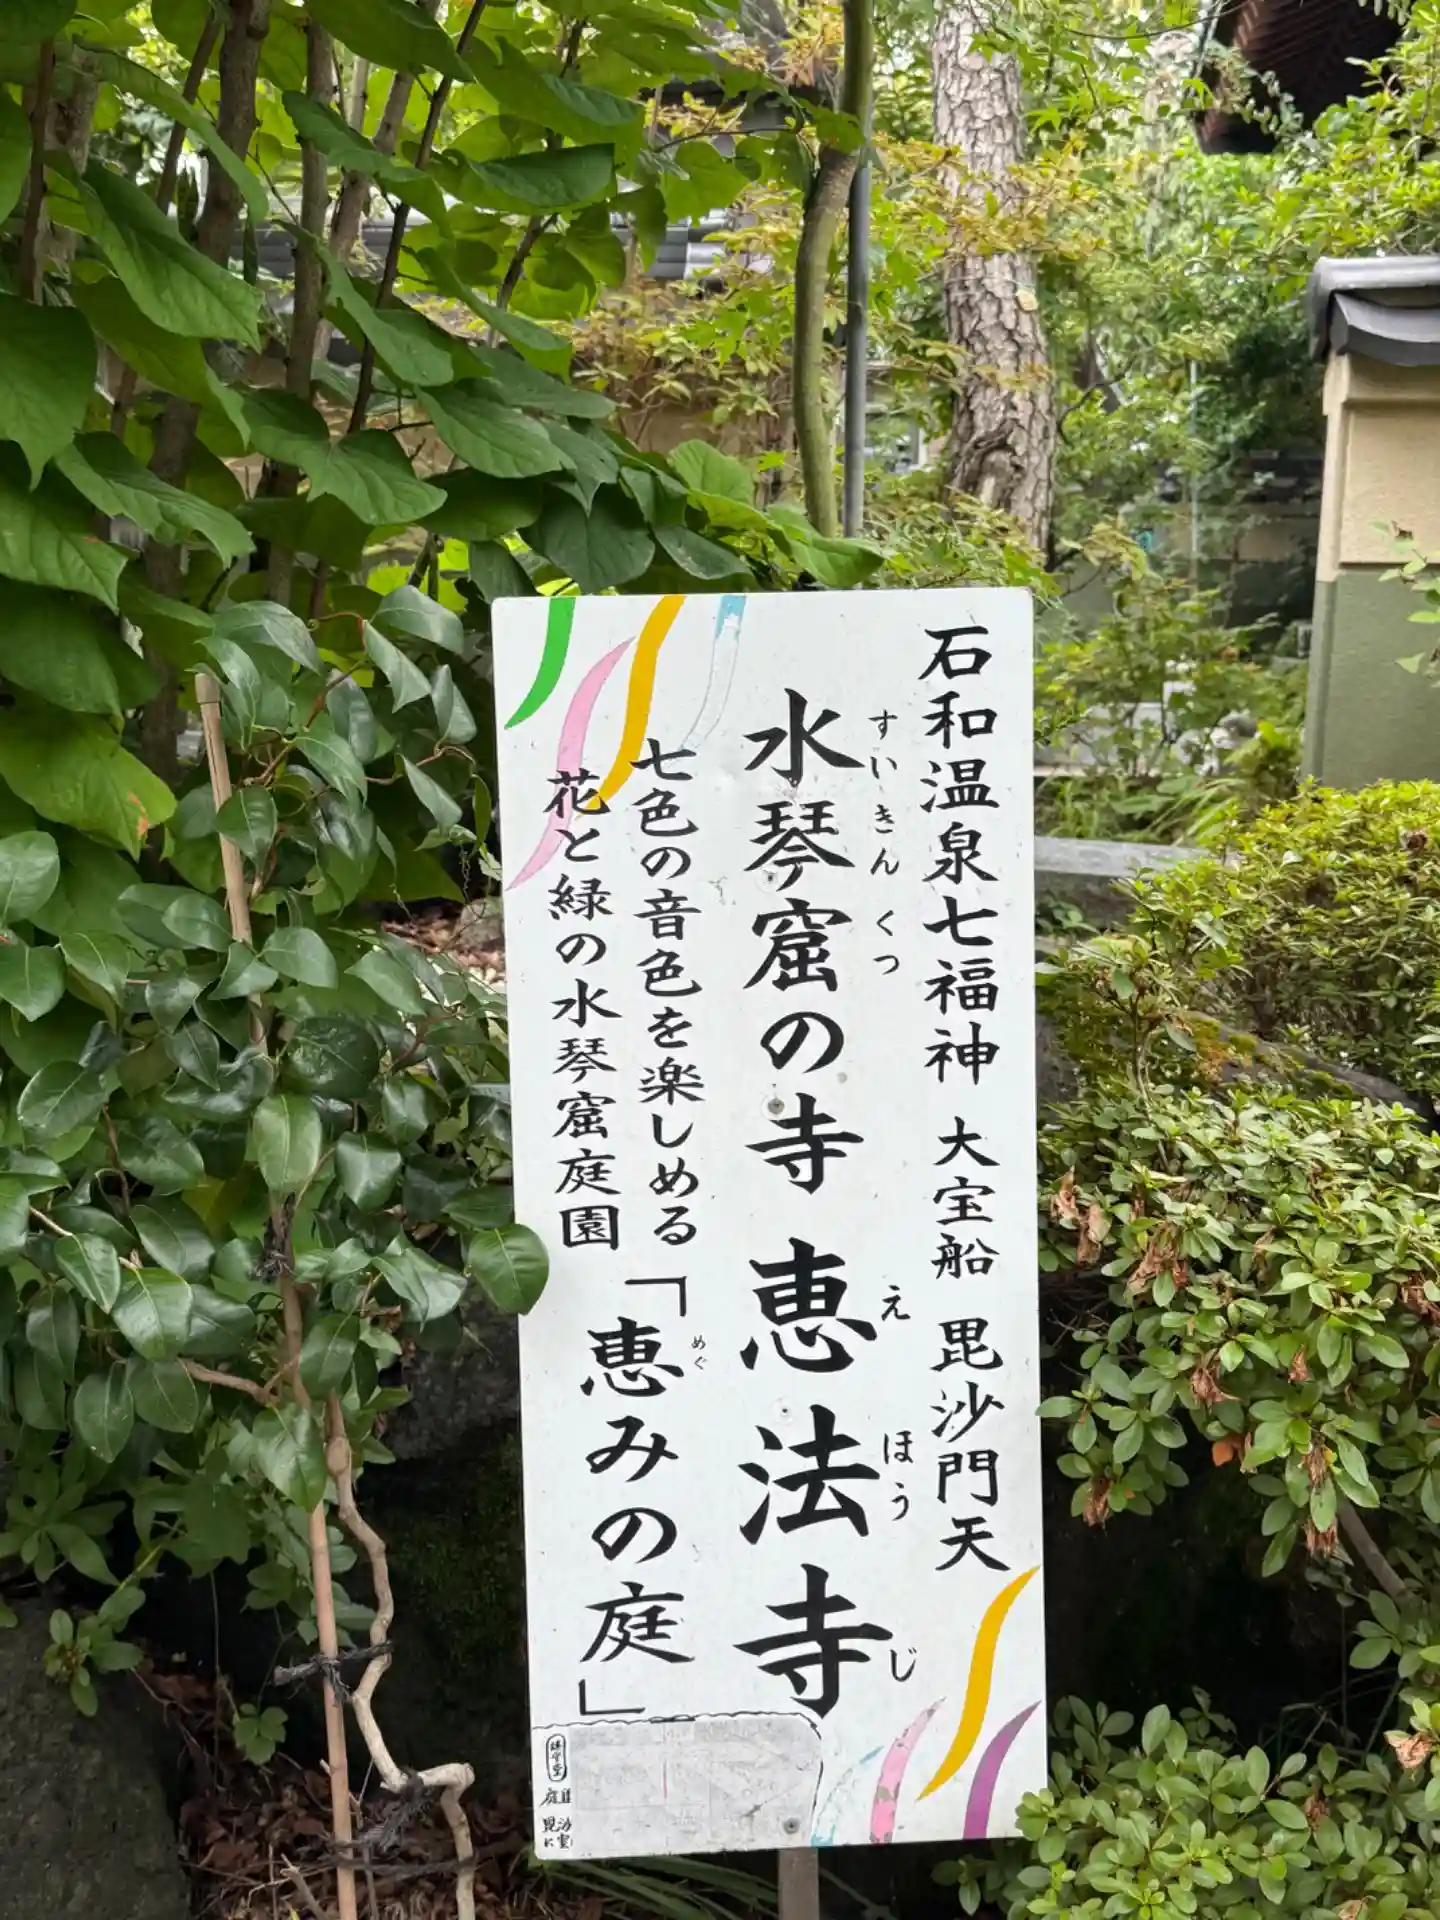 石和温泉七福神 大宝船 毘沙門天
すいきんくつ
水琴窟の寺 恵法寺
えほうじ
七色の音色を楽しめる
花と緑の水琴窟庭園
「恵みの庭」
めぐ